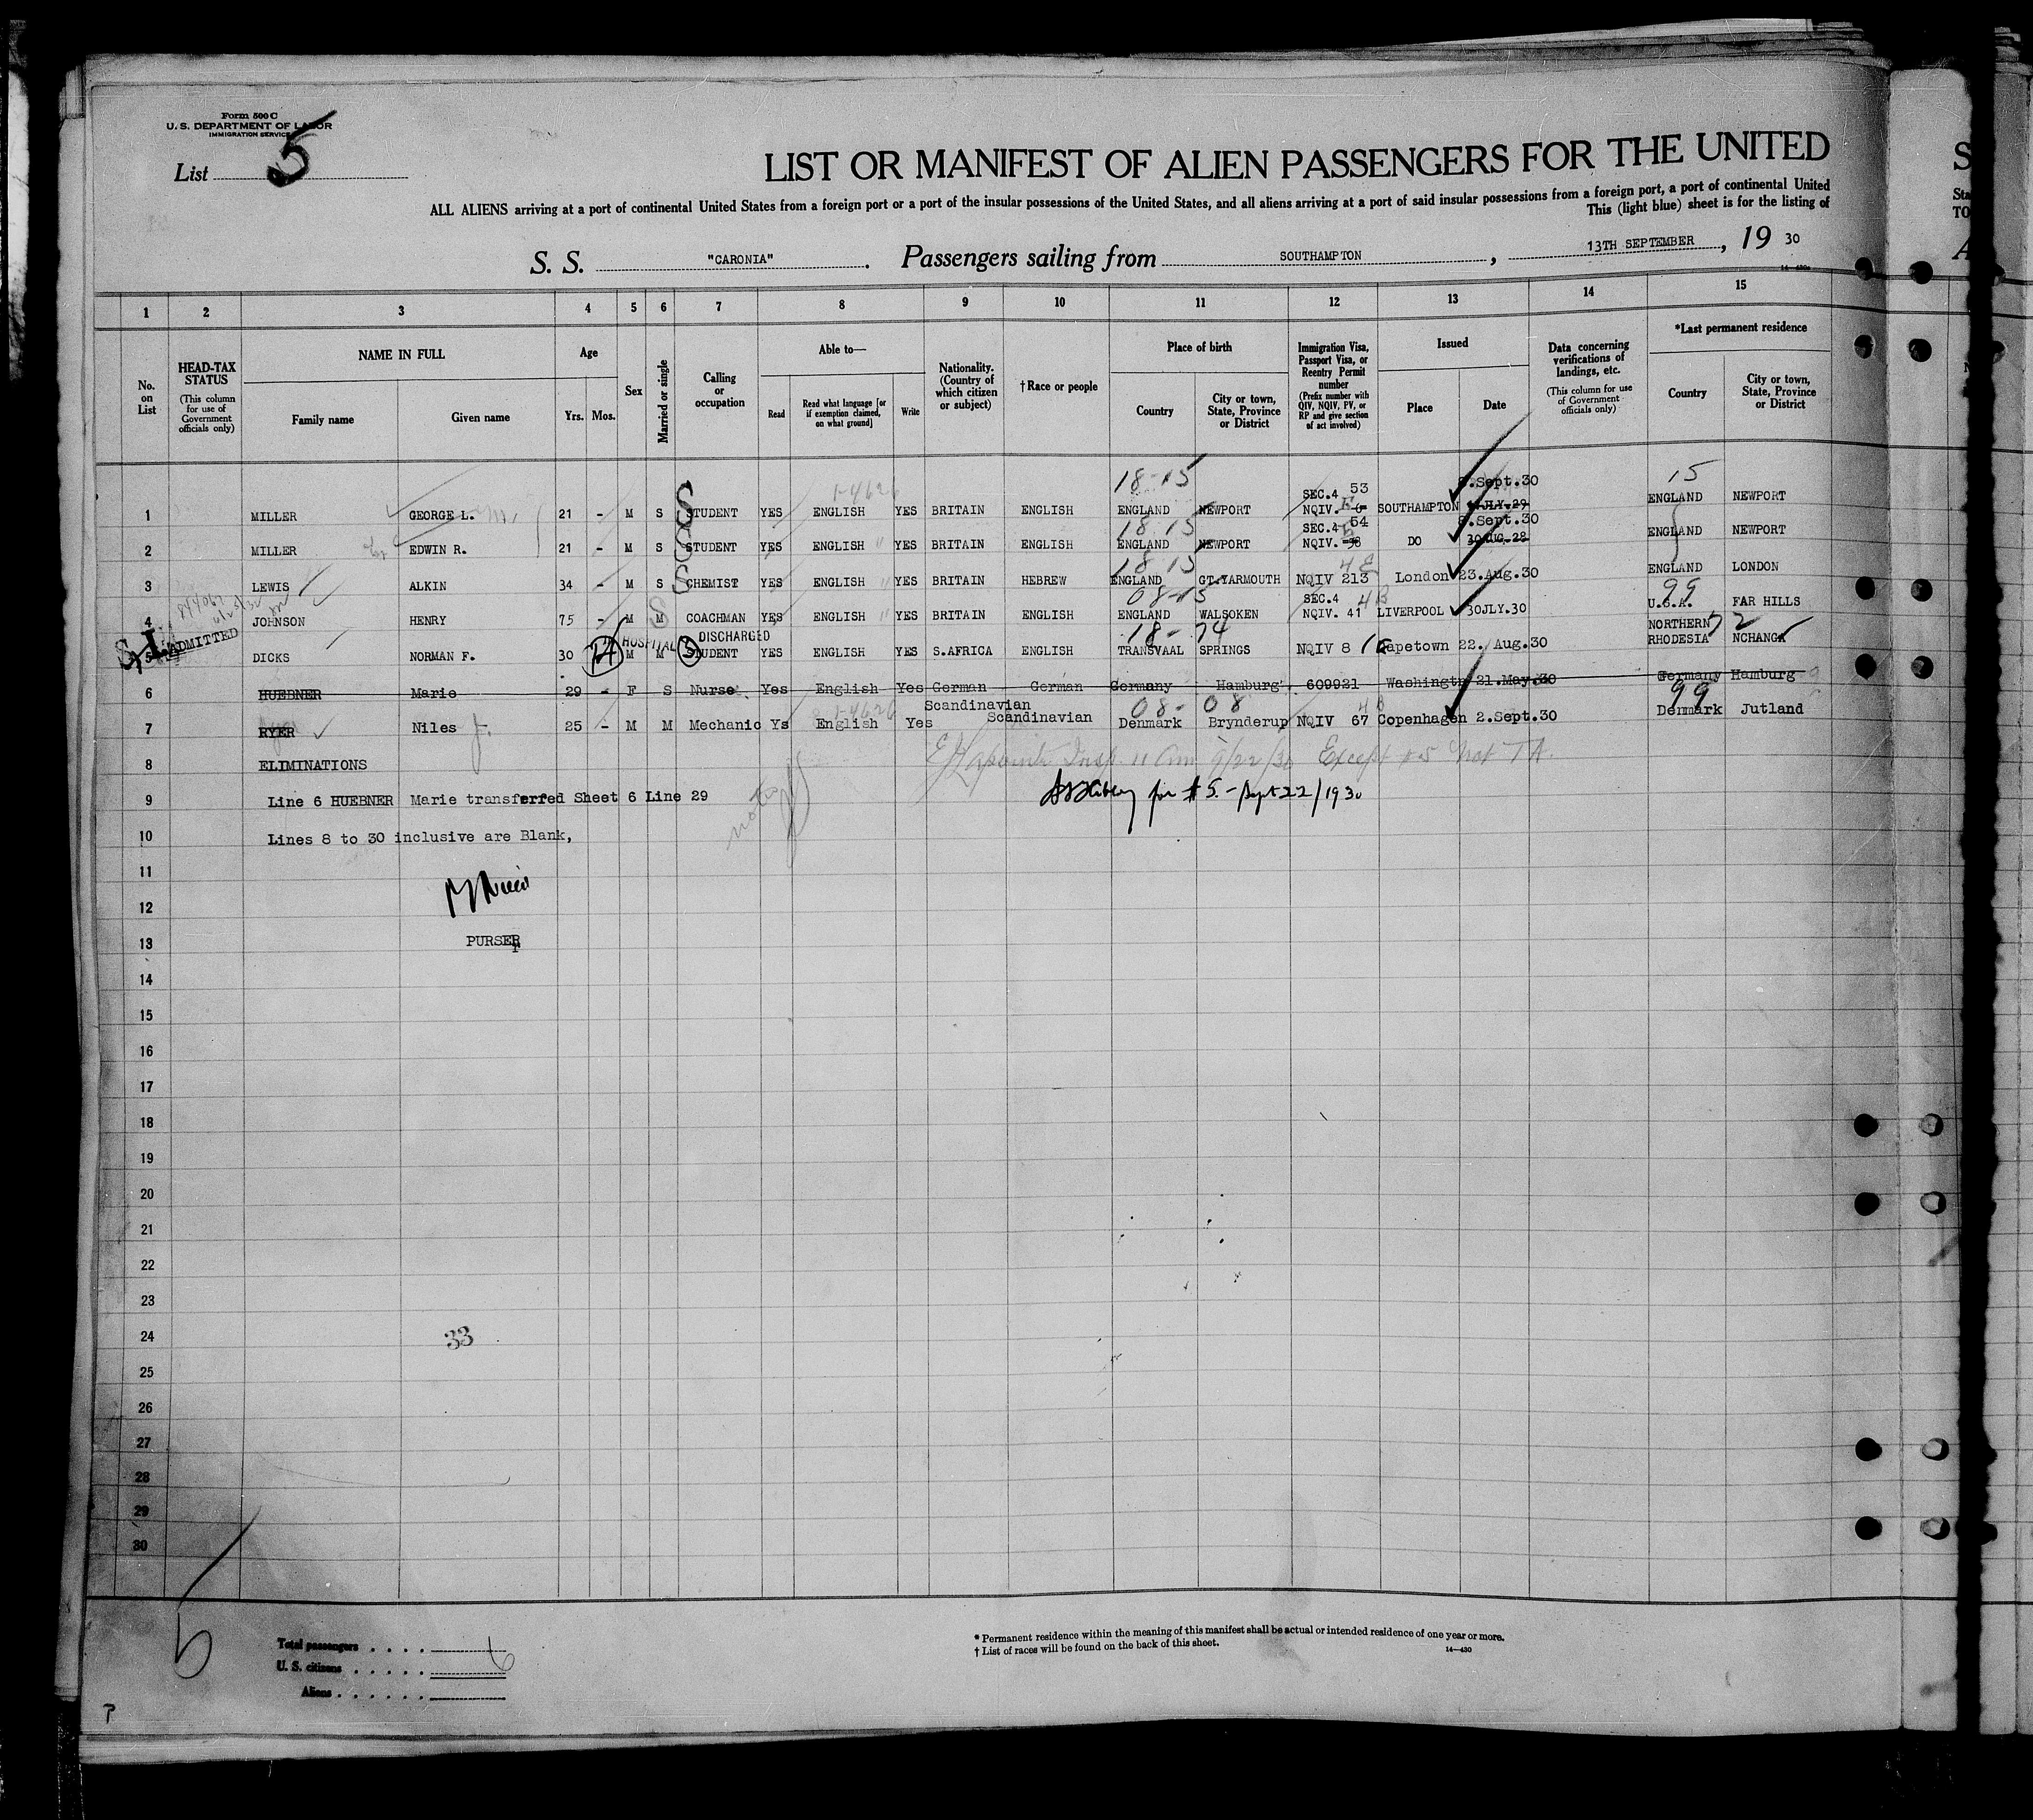 Form 500 C
U. S. DEPARTMENT OF LABOR
IMMIGRATION SERVICE
List 5
LIST OR MANIFEST OF ALIEN PASSENGERS FOR THE UNITED
ALL ALIENS arriving at a port of continental United States from a foreign port or a port of the insular possessions of the United States, and all aliens arriving at a port of said insular possessions from a foreign port, a port of continental United
This (light blue) sheet is for the listing of
S. S. "CARONIA". Passengers sailing from SOUTHAMPTON, 13TH SEPTEMBER, 19 30
1 2 3 4 5 6 7 8 9 10 11 12 13 14 15
No. on List
HEAD-TAX STATUS (This column for use of Government officials only)
NAME IN FULL
Family name Given name
Age
Yrs. Mos.
Sex
Married or single
Calling or occupation
Able to—
Read
Read what language [or if exemption claimed, on what ground]
Write
Nationality. (Country of which citizen or subject)
†Race or people
Place of birth
Country
City or town, State, Province or District
Immigration Visa, Passport Visa, or Reentry Permit number (Prefix number with QIV, NQIV, PV, or RP and give section of act involved)
Issued
Place Date
Data concerning verifications of landings, etc. (This column for use of Government officials only)
*Last permanent residence
Country
City or town, State, Province or District
18-15 SEC.4 53 5.Sept.30 15
1 MILLER GEORGE L. 21 - M S STUDENT YES ENGLISH YES BRITAIN ENGLISH ENGLAND NEWPORT NQIV. SOUTHAMPTON JLY.29 ENGLAND NEWPORT
18 15 SEC.4 54 5.Sept.30
2 MILLER EDWIN R. 21 - M S STUDENT YES ENGLISH YES BRITAIN ENGLISH ENGLAND NEWPORT NQIV. 38 DO 30AUG.28 ENGLAND NEWPORT
18 15
3 LEWIS ALKIN 34 - M S CHEMIST YES ENGLISH YES BRITAIN HEBREW ENGLAND GT.YARMOUTH NQIV 213 London 23.Aug.30 ENGLAND LONDON
08-15 SEC.4 99
4 JOHNSON HENRY 75 - M M COACHMAN YES ENGLISH YES BRITAIN ENGLISH ENGLAND WALSOKEN NQIV. 41 LIVERPOOL 30JLY.30 U.S.A. FAR HILLS
ADMITTED HOSPITAL DISCHARGED 18-74 72
5 DICKS NORMAN F. 30 M M STUDENT YES ENGLISH YES S.AFRICA ENGLISH TRANSVAAL SPRINGS NQIV 8 Capetown 22. Aug.30 NORTHERN RHODESIA NCHANGA
6 HUEBNER Marie 29 - F S Nurse. Yes English Yes German German Germany Hamburg 609921 Washingtn 21.May.30 Germany Hamburg
Scandinavian 08-08 99
7 RYER Niles J. 25 - M M Mechanic Ys English Yes Scandinavian Denmark Brynderup NQIV 67 Copenhagen 2.Sept.30 Denmark Jutland
8 ELIMINATIONS Insp. 11 Am 9/22/30 Except #5 Not T A.
9 Line 6 HUEBNER Marie transferred Sheet 6 Line 29 for #5. - Sept 22/1930
10 Lines 8 to 30 inclusive are Blank,
11
12
13 PURSER
14
15
16
17
18
19
20
21
22
23
24 33
25
26
27
28
29
30
5
Total passengers . . . . 6
U. S. citizens . . . . .
Aliens . . . . . .
* Permanent residence within the meaning of this manifest shall be actual or intended residence of one year or more.
† List of races will be found on the back of this sheet.
14—430